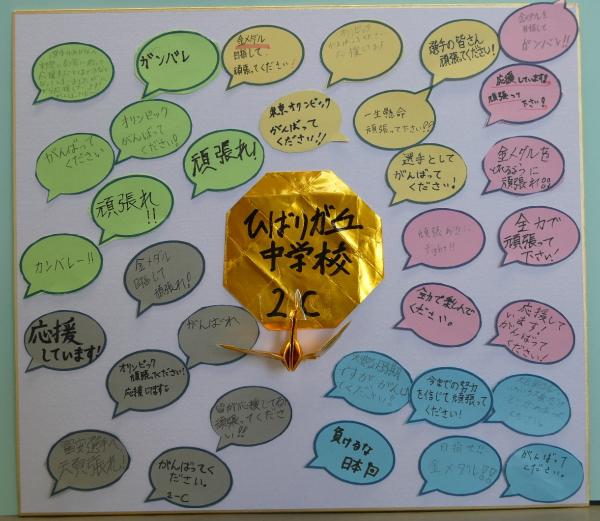 ガンバレ
金メダル
目指して、
頑張ってください!
オリンピック
選手の皆さん
頑張ってください!
金メダルを
目指して
ガンバレ!!
応援しています!
頑張って
下さい!
オリンピック
がんばって
ください!
東京オリンピック
がんばって
ください!!
一生懸命
頑張って下さい!?
がんばって
ください
頑張れ!
選手として
がんばって
ください!
金メダルを
とれるように
頑張れ!!
頑張れ
!!
ひばりが丘
中学校
2-C
fight!!
全力で
頑張って
下さい!
カンバレー!!
金メダル
目指して
頑張れ!
全力で楽しんで
ください。
応援して
います!
がんばって
ください!
応援
しています!
がんばれ
オリンピック
頑張ってください!
応援します
今までの努力
を信じて頑張って
ください!
皆が応援してる
頑張ってくださ
い!!
頑張れ!
がんばってく
ださい。
2-C
負けるな
日本
目指せ!!
金メダル!!
がんばって
ください。